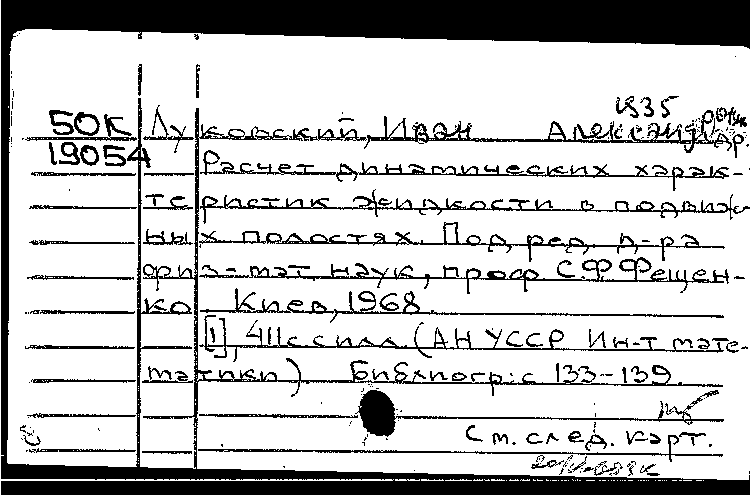 1935
50К Луковский, Иван Александр.
19054 Расчет динамических харак-
теристик жидкости в подвиж-
ных полостях. Под ред. д-ра
физ-мат. наук, проф С.Ф.Фещен-
ко Киев, 1968.
[1], 411с с илл (АН УССР Ин-т мате-
матики). Библиогр: с 133-139.
См. след. карт.